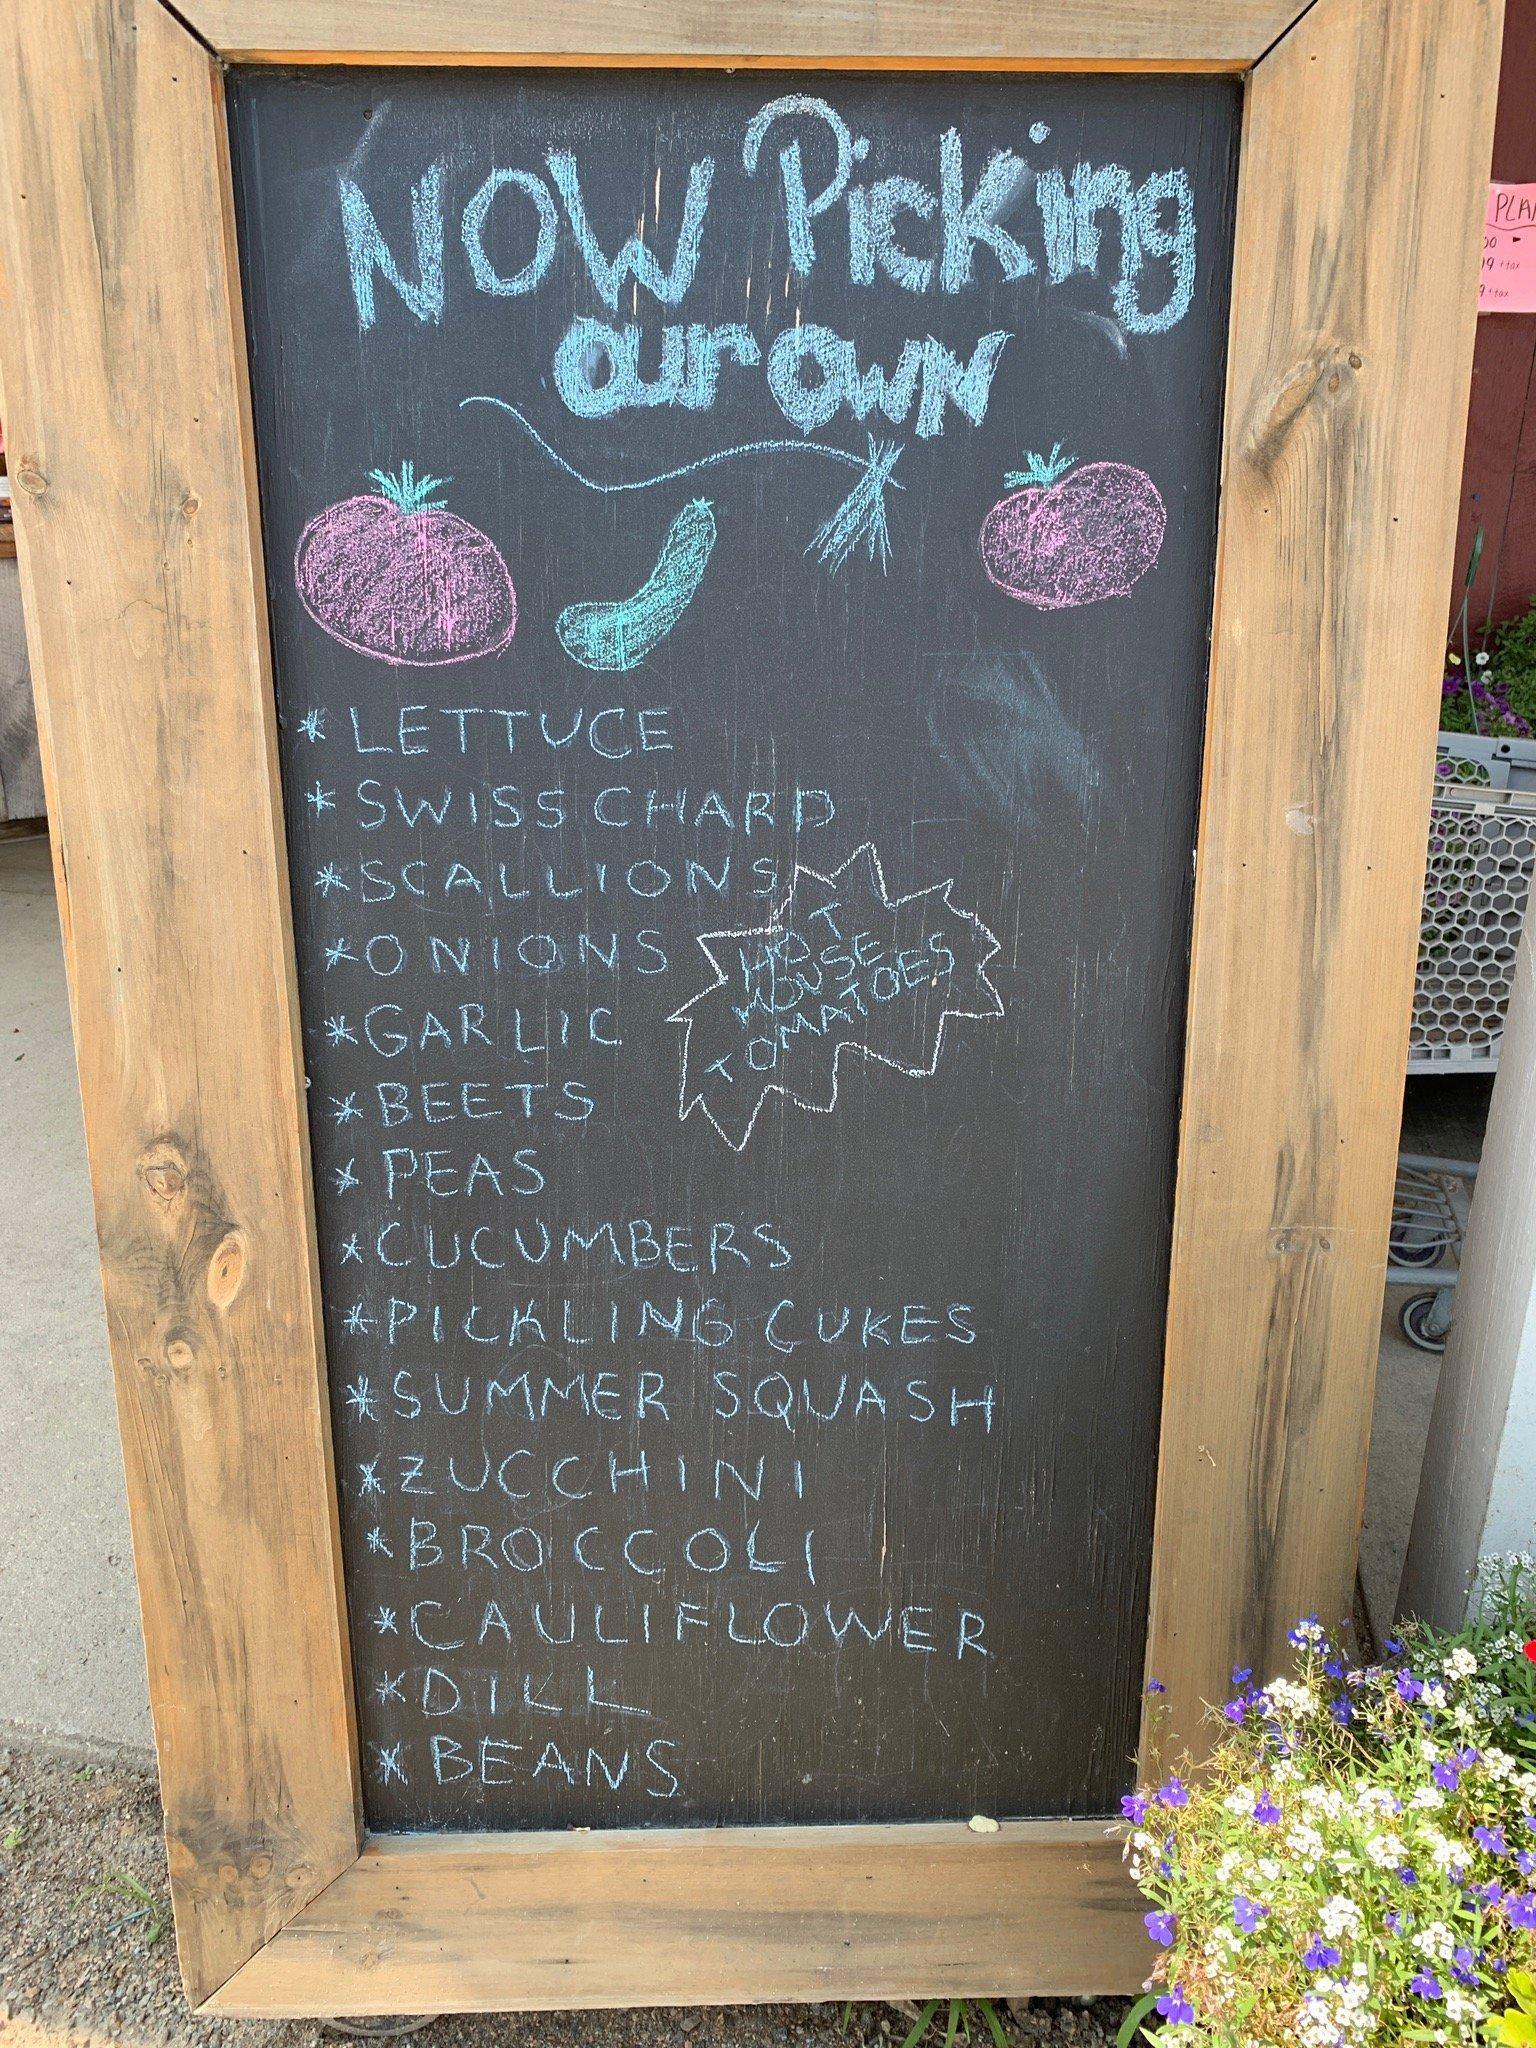 NOW Picking
our OWN
* LETTUCE
* SWISS CHARD
* SCALLIONS
* ONIONS
* GARLIC
* BEETS
* PEAS
* CUCUMBERS
* PICKLING CUKES
* SUMMER SQUASH
* ZUCCHINI
* BROCCOLI
* CAULIFLOWER
* DILL
* BEANS
HOT
HOUSE
TOMATOES
+tax
+tax